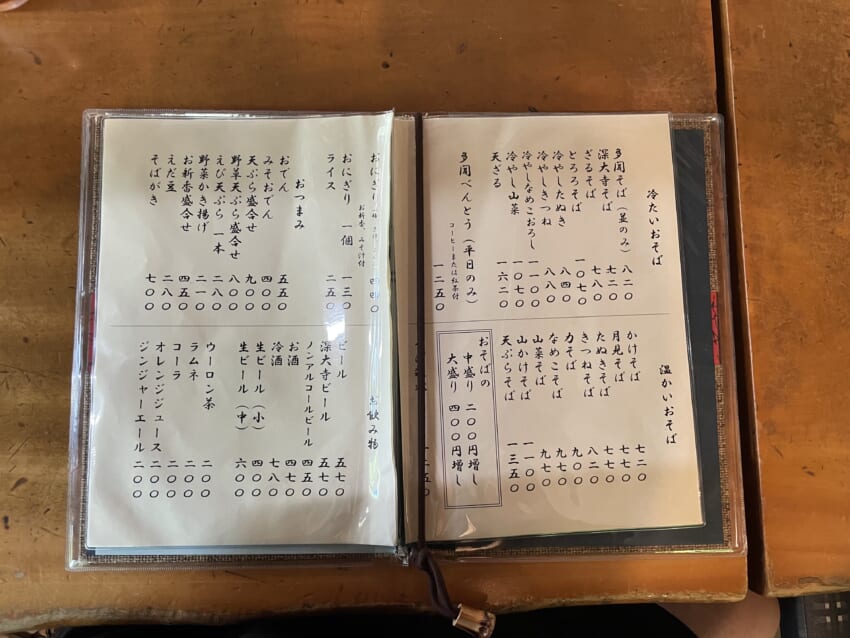 冷たいおそば
多聞そば（並のみ） 八二〇
深大寺そば 七二〇
ざるそば 七八〇
とろろそば 一〇七〇
冷やしたぬき 八四〇
冷やしきつね 八八〇
冷やしなめこおろし 一一〇〇
冷やし山菜 一〇七〇
天ざる 一六二〇
多聞べんとう（平日のみ） 一二五〇
コーヒーまたは紅茶付
温かいおそば
かけそば 七二〇
月見そば 七七〇
たぬきそば 七七〇
きつねそば 八二〇
力そば 九〇〇
なめこそば 九七〇
山菜そば 九七〇
山かけそば 一一〇〇
天ぷらそば 一三五〇
おそばの
中盛り 二〇〇円増し
大盛り 四〇〇円増し
おにぎり 四四〇
お新香、みそ汁付
おにぎり 一個 一三〇
ライス 二五〇
おつまみ
おでん 五五〇
みそおでん 四〇〇
天ぷら盛合せ 九〇〇
野草天ぷら盛合せ 八〇〇
えび天ぷら 一本 二八〇
野菜かき揚げ 二一〇
お新香盛合せ 四五〇
えだ豆 二八〇
そばがき 七〇〇
お飲み物
ビール 五七〇
深大寺ビール 五七〇
ノンアルコールビール 四五〇
お酒 四七〇
冷酒 七八〇
生ビール（小） 四〇〇
生ビール（中） 六〇〇
ウーロン茶 二〇〇
ラムネ 二〇〇
コーラ 二〇〇
オレンジジュース 二〇〇
ジンジャーエール 二〇〇